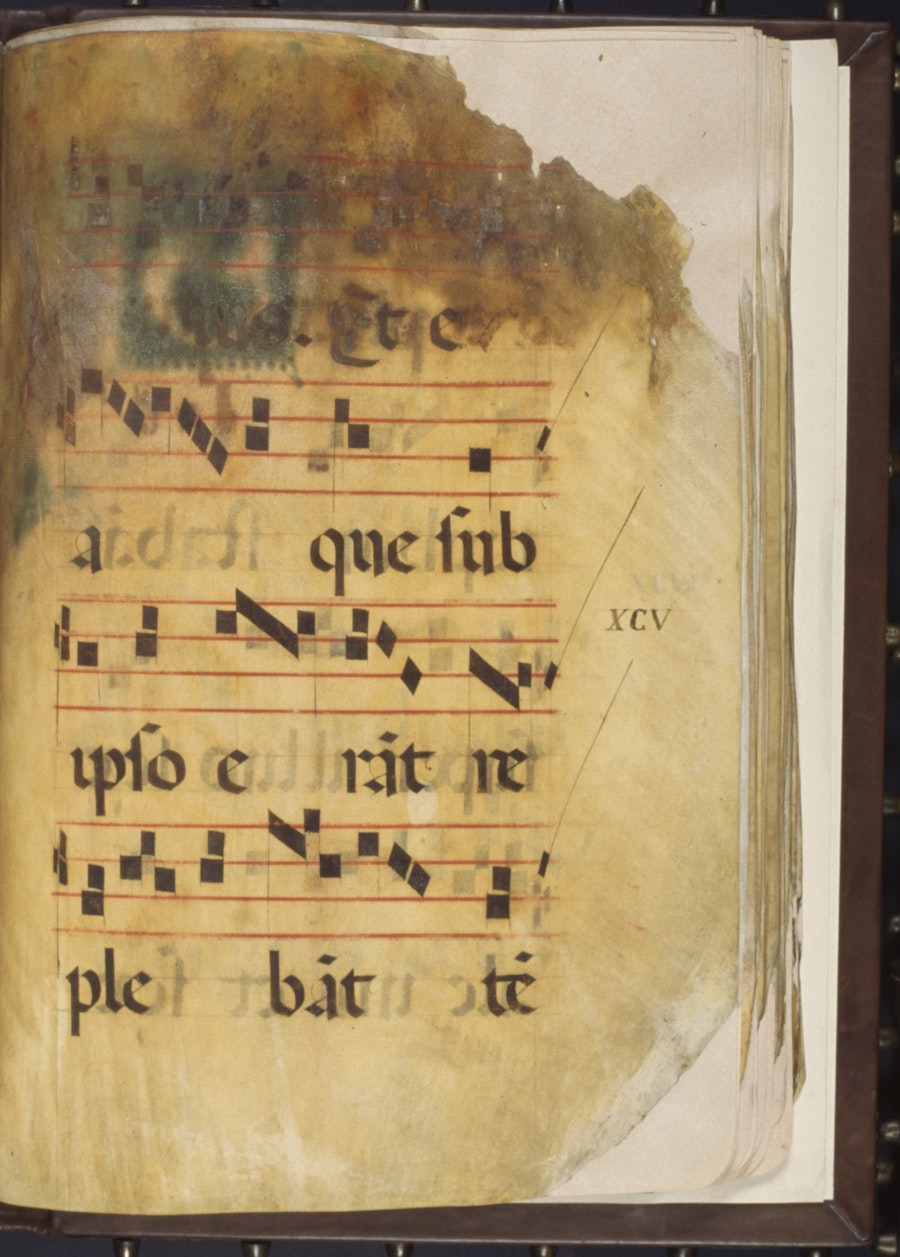 Et e
a que sub
ipso e rāt re
XCV
ple bāt tē